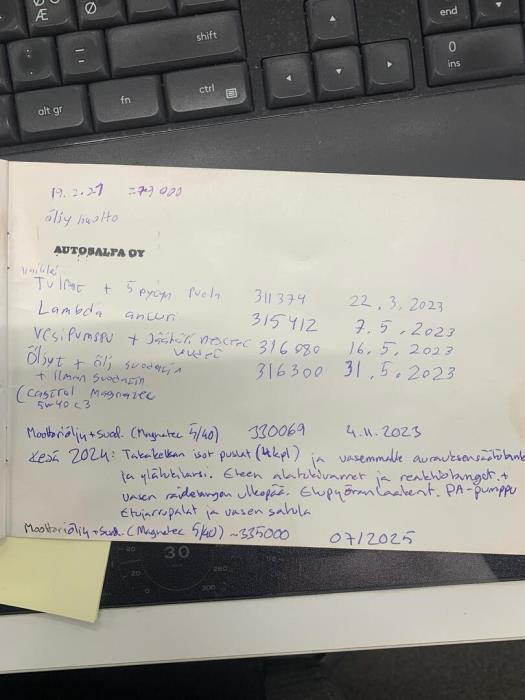 Æ
Ø
shift
end
0
ins
alt gr
fn
ctrl
19.2.21 279 000
öljy huolto
AUTOSALPA OY
Tulpat + 5 puola 311374 22.3.2023
Lambda anturi 315412 7.5.2023
Vesipumppu + Jäähdri nesteet uudet 316080 16.5.2023
Öljyt + ölj suodatin 316300 31.5.2023
+ Ilman suodatin
(Castrol Magnatec
5w40 c3
Moottoriöljy + Suod. (Magnatec 5/40) 330069 4.11.2023
Kesä 2024: Takakelkan isot puslat (4kpl) ja vasemmalle
ja ylätukivarsi. Eteen alatukivarret ja reaktiotangot. +
vasen raidetangon ulkopää. Etupyöränlaakerit. PA-pumppu
Etujarrupalat ja vasen satula
Moottoriöljy + Suod. (Magnatec 5/40) ~335000 07/2025
20
30
20
0
260
300